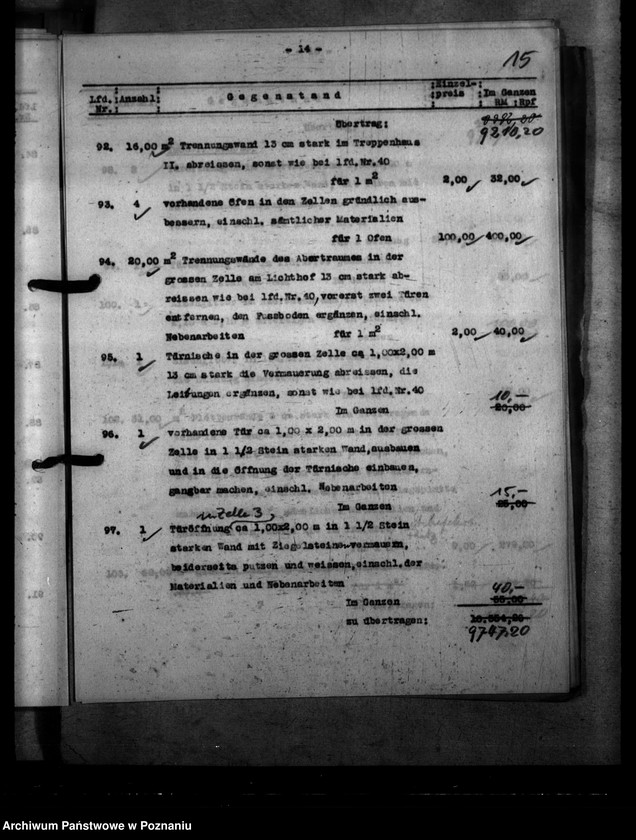 - 14 -
15
Lfd. Nr. Anzahl Gegenstand Einzel-preis Im Ganzen RM Rpf
Übertrag:
9210,20
92. 16,00 m² Trennungswand 13 cm stark im Treppenhaus
II. abreissen, sonst wie bei lfd.Nr.40
für 1 m² 2,00 32,00
93. 4 vorhandene Öfen in den Zellen gründlich aus-
bessern, einschl. sämtlicher Materialien
für 1 Ofen 100,00 400,00
94. 20,00 m² Trennungswände des Abortraumes in der
grossen Zelle am Lichthof 13 cm stark ab-
reissen wie bei lfd.Nr.40, vorerst zwei Türen
entfernen, den Fussboden ergänzen, einschl.
Nebenarbeiten für 1 m² 2,00 40,00
95. 1 Türnische in der grossen Zelle ca 1,00x2,00 m
13 cm stark die Vermauerung abreissen, die
Leibungen ergänzen, sonst wie bei lfd.Nr.40
10,-
Im Ganzen 20,00
96. 1 vorhandene Tür ca 1,00 x 2,00 m in der grossen
Zelle in 1 1/2 Stein starken Wand,ausbauen
und in die Öffnung der Türnische einbauen,
gangbar machen, einschl. Nebenarbeiten
15,-
Im Ganzen
in Zelle 3
97. 1 Türöffnung ca 1,00x2,00 m in 1 1/2 Stein
starken Wand mit Ziegelsteinen vermauern,
beiderseits putzen und weissen,einschl.der
Materialien und Nebenarbeiten
40,-
Im Ganzen
zu übertragen:
9747,20
Archiwum Państwowe w Poznaniu